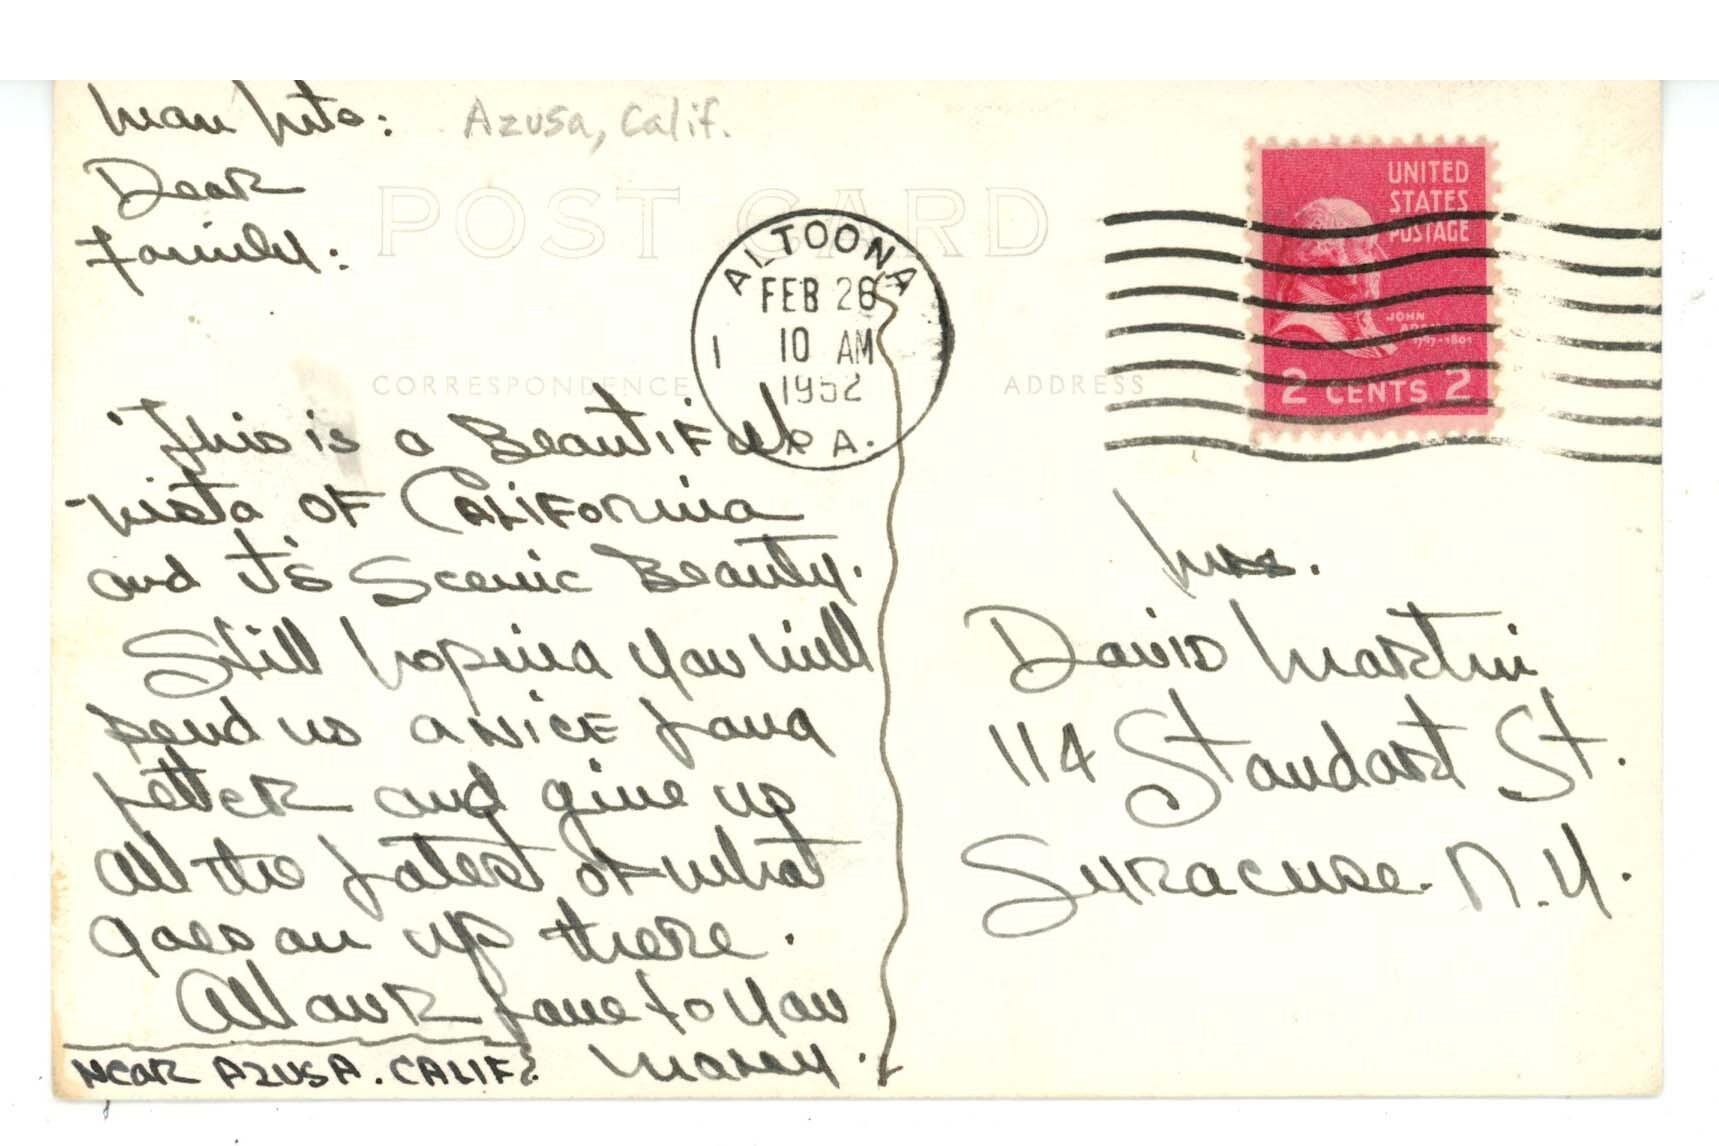 Mon Nite: Azusa, Calif.
Dear
Family:
POST CARD
ALTOONA
FEB 26
10 AM
1
1952
PA.
UNITED
STATES
POSTAGE
JOHN
ADAMS
1797-1801
2 CENTS 2
CORRESPONDENCE
ADDRESS
This is a Beautiful
vista of California
and it's Scenic Beauty.
Still hoping you will
send us a nice long
letter and give us
all the latest of what
goes on up there.
All our love to you
NEAR AZUSA. CALIF.
Mrs.
David Martin
114 Standart St.
Syracuse. N.Y.